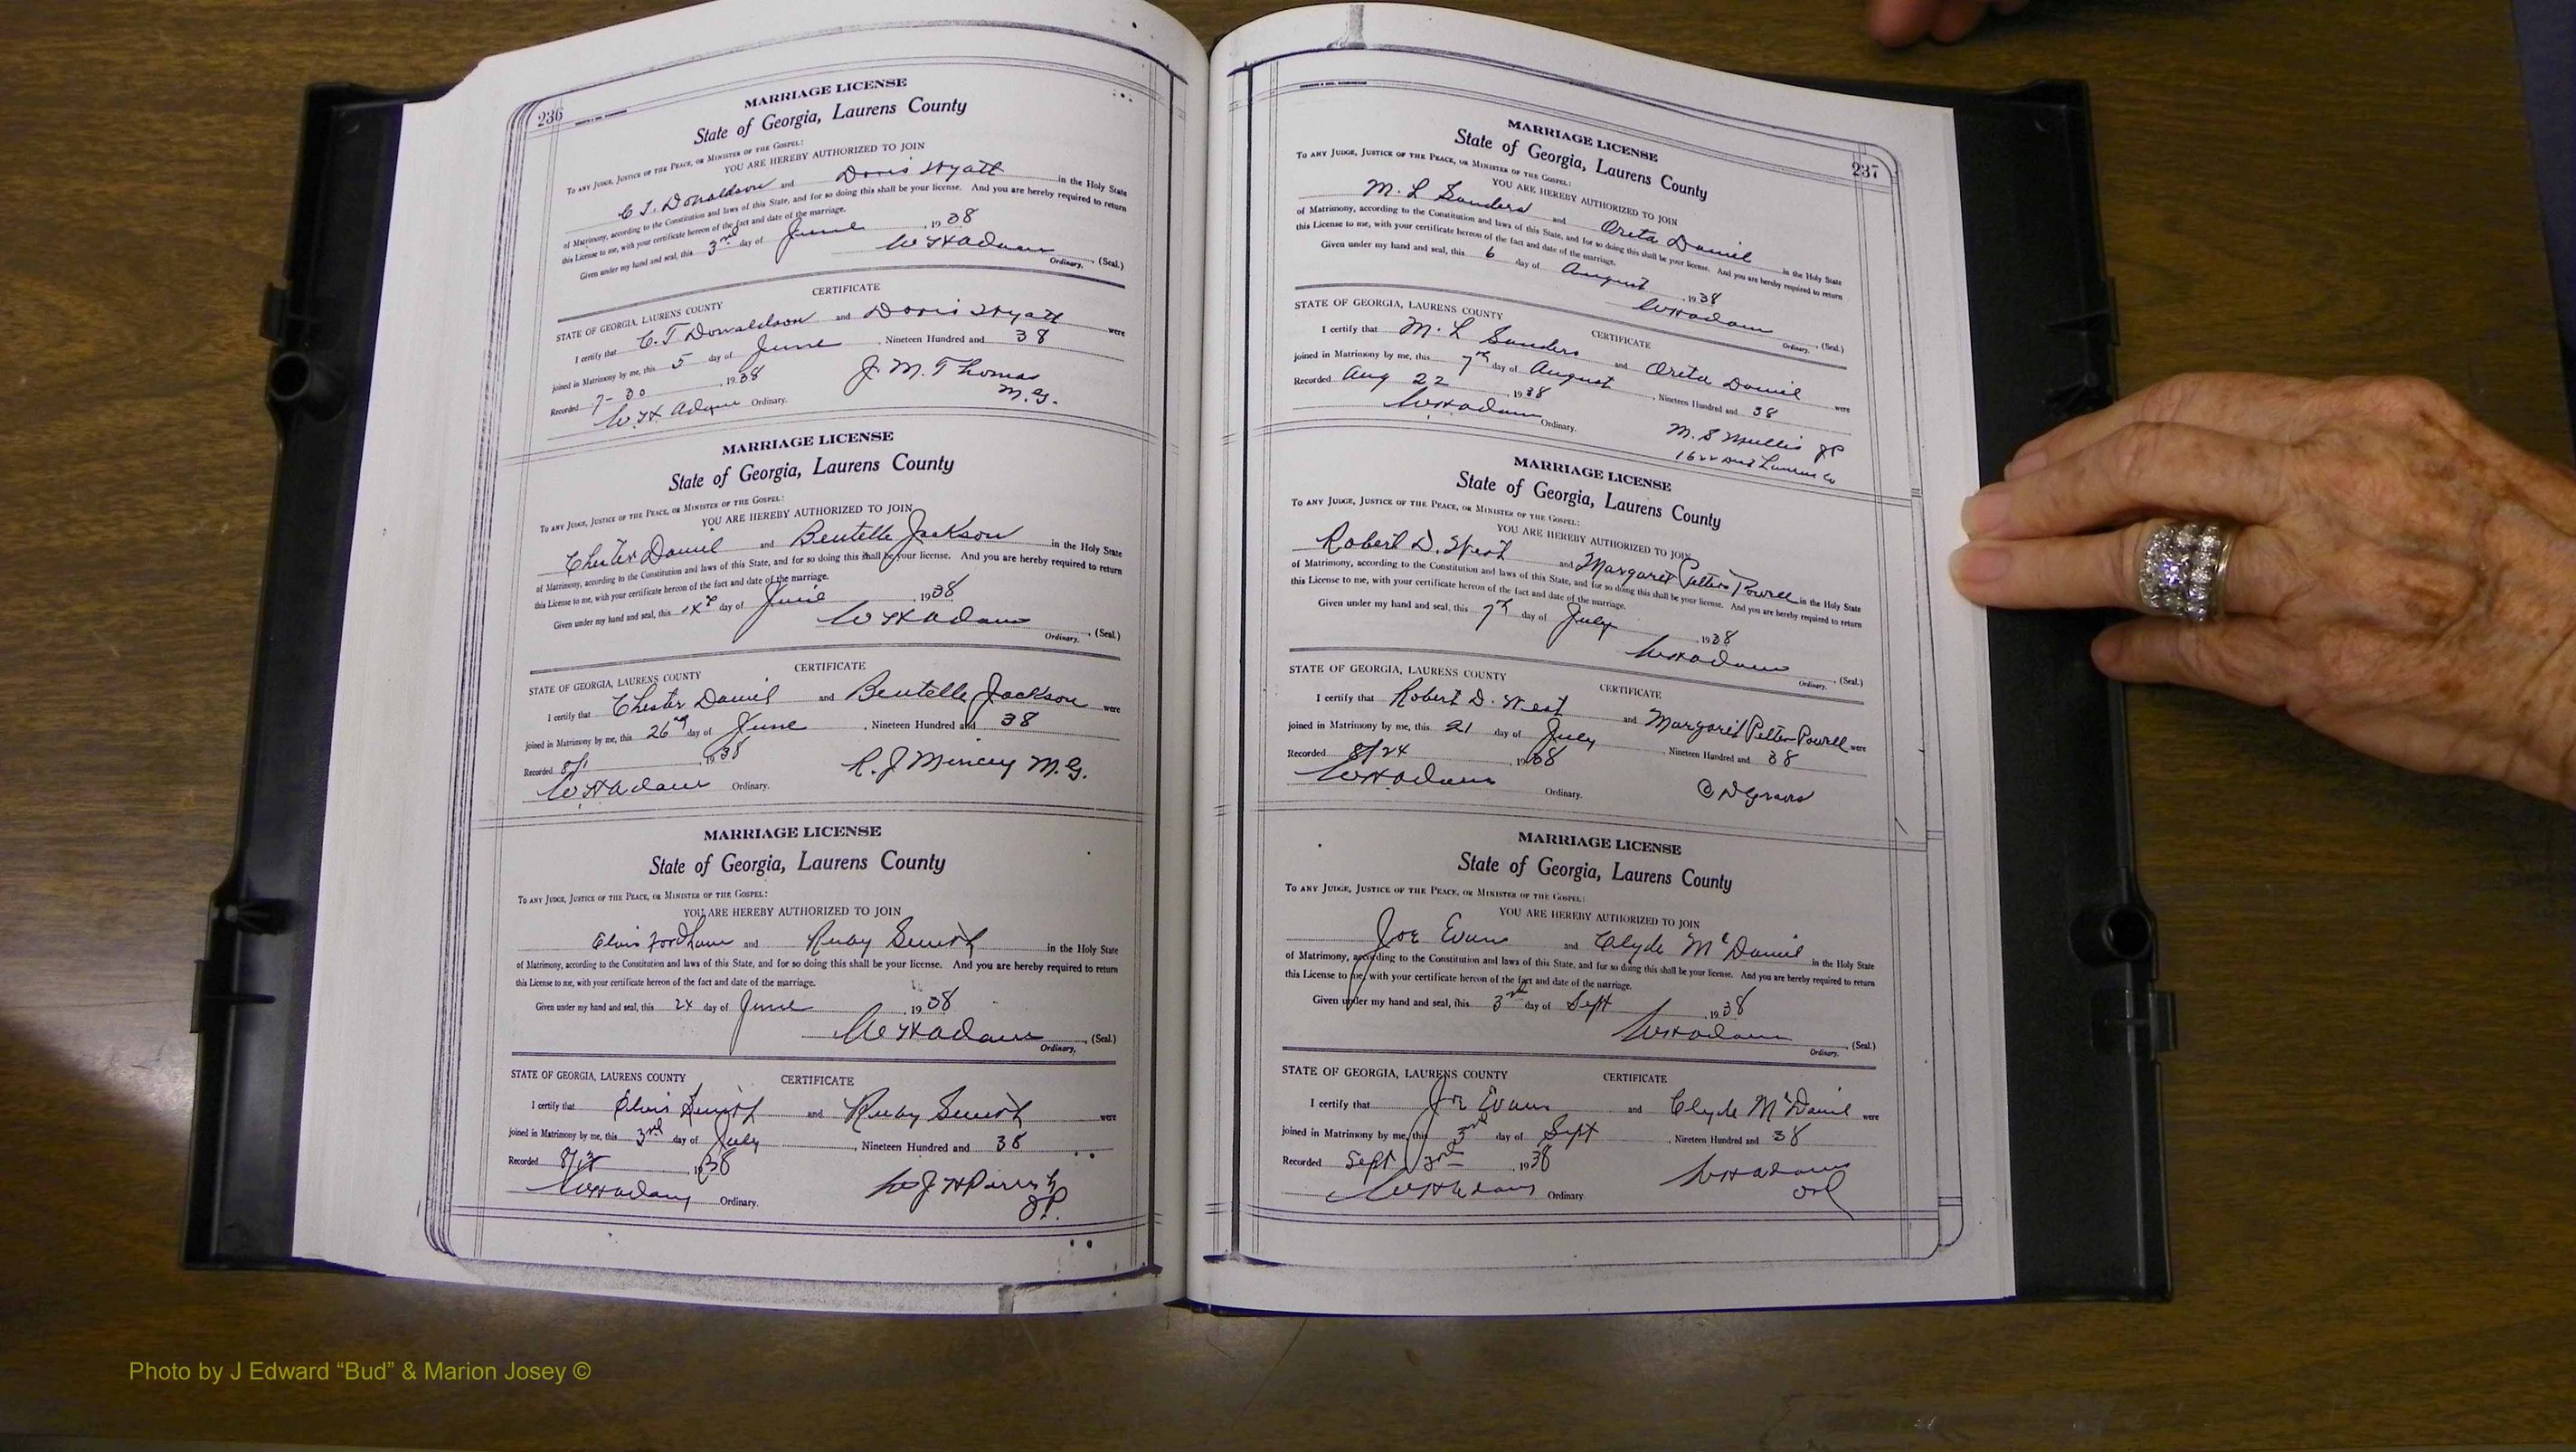 236
MARRIAGE LICENSE
State of Georgia, Laurens County
To any Judge, Justice of the Peace, or Minister of the Gospel:
YOU ARE HEREBY AUTHORIZED TO JOIN
C T. Donaldson and Doris Wyatt in the Holy State
of Matrimony, according to the Constitution and laws of this State, and for so doing this shall be your license. And you are hereby required to return
this License to me, with your certificate hereon of the fact and date of the marriage.
Given under my hand and seal, this 3rd day of June, 1938
W H Adams, (Seal.)
Ordinary.
CERTIFICATE
STATE OF GEORGIA, LAURENS COUNTY
I certify that C. T Donaldson and Doris Wyatt were
joined in Matrimony by me, this 5 day of June, Nineteen Hundred and 38
Recorded 7-30, 1938
J. M. Thomas
M. G.
W. H Adams Ordinary.
MARRIAGE LICENSE
State of Georgia, Laurens County
To any Judge, Justice of the Peace, or Minister of the Gospel:
YOU ARE HEREBY AUTHORIZED TO JOIN
Chester Daniel and Beutelle Jackson in the Holy State
of Matrimony, according to the Constitution and laws of this State, and for so doing this shall be your license. And you are hereby required to return
this License to me, with your certificate hereon of the fact and date of the marriage.
Given under my hand and seal, this day of June, 1938
W H Adams, (Seal.)
Ordinary.
CERTIFICATE
STATE OF GEORGIA, LAURENS COUNTY
I certify that Chester Daniel and Beutelle Jackson were
joined in Matrimony by me, this 26 day of June, Nineteen Hundred and 38
Recorded 8/1, 1938
R. J Mincey M. G.
W. H Adams Ordinary.
MARRIAGE LICENSE
State of Georgia, Laurens County
To any Judge, Justice of the Peace, or Minister of the Gospel:
YOU ARE HEREBY AUTHORIZED TO JOIN
Elvis Fordham and Ruby Smith in the Holy State
of Matrimony, according to the Constitution and laws of this State, and for so doing this shall be your license. And you are hereby required to return
this License to me, with your certificate hereon of the fact and date of the marriage.
Given under my hand and seal, this 24 day of June, 1938
W H Adams, (Seal.)
Ordinary.
STATE OF GEORGIA, LAURENS COUNTY CERTIFICATE
I certify that Elvis Smith and Ruby Smith were
joined in Matrimony by me, this 3rd day of July, Nineteen Hundred and 38
Recorded, 1938
W J H Parrish
JP.
W H Adams Ordinary.
237
MARRIAGE LICENSE
State of Georgia, Laurens County
To any Judge, Justice of the Peace, or Minister of the Gospel:
YOU ARE HEREBY AUTHORIZED TO JOIN
M. L Sanders and Oreta Daniel in the Holy State
of Matrimony, according to the Constitution and laws of this State, and for so doing this shall be your license. And you are hereby required to return
this License to me, with your certificate hereon of the fact and date of the marriage.
Given under my hand and seal, this 6 day of August, 1938
W H Adams, (Seal.)
Ordinary.
STATE OF GEORGIA, LAURENS COUNTY CERTIFICATE
I certify that M. L Sanders and Oreta Daniel were
joined in Matrimony by me, this 7th day of August, Nineteen Hundred and 38
Recorded Aug 22, 1938
W H Adams Ordinary.
M. S Mullis JP
1622 Dist Laurens Co
MARRIAGE LICENSE
State of Georgia, Laurens County
To any Judge, Justice of the Peace, or Minister of the Gospel:
YOU ARE HEREBY AUTHORIZED TO JOIN
Robert D. West and Margaret Powell in the Holy State
of Matrimony, according to the Constitution and laws of this State, and for so doing this shall be your license. And you are hereby required to return
this License to me, with your certificate hereon of the fact and date of the marriage.
Given under my hand and seal, this 7th day of July, 1938
W H Adams, (Seal.)
Ordinary.
STATE OF GEORGIA, LAURENS COUNTY CERTIFICATE
I certify that Robert D. West and Margaret Powell were
joined in Matrimony by me, this 21 day of July, Nineteen Hundred and 38
Recorded 8/24, 1938
W H Adams Ordinary.
MARRIAGE LICENSE
State of Georgia, Laurens County
To any Judge, Justice of the Peace, or Minister of the Gospel:
YOU ARE HEREBY AUTHORIZED TO JOIN
Joe Evans and Clyde McDaniel in the Holy State
of Matrimony, according to the Constitution and laws of this State, and for so doing this shall be your license. And you are hereby required to return
this License to me, with your certificate hereon of the fact and date of the marriage.
Given under my hand and seal, this 3rd day of Sept, 1938
W H Adams, (Seal.)
Ordinary.
STATE OF GEORGIA, LAURENS COUNTY CERTIFICATE
I certify that Joe Evans and Clyde McDaniel were
joined in Matrimony by me, this 3rd day of Sept, Nineteen Hundred and 38
Recorded Sept 3rd, 1938
W H Adams
Ord
W H Adams Ordinary.
Photo by J Edward “Bud” & Marion Josey ©